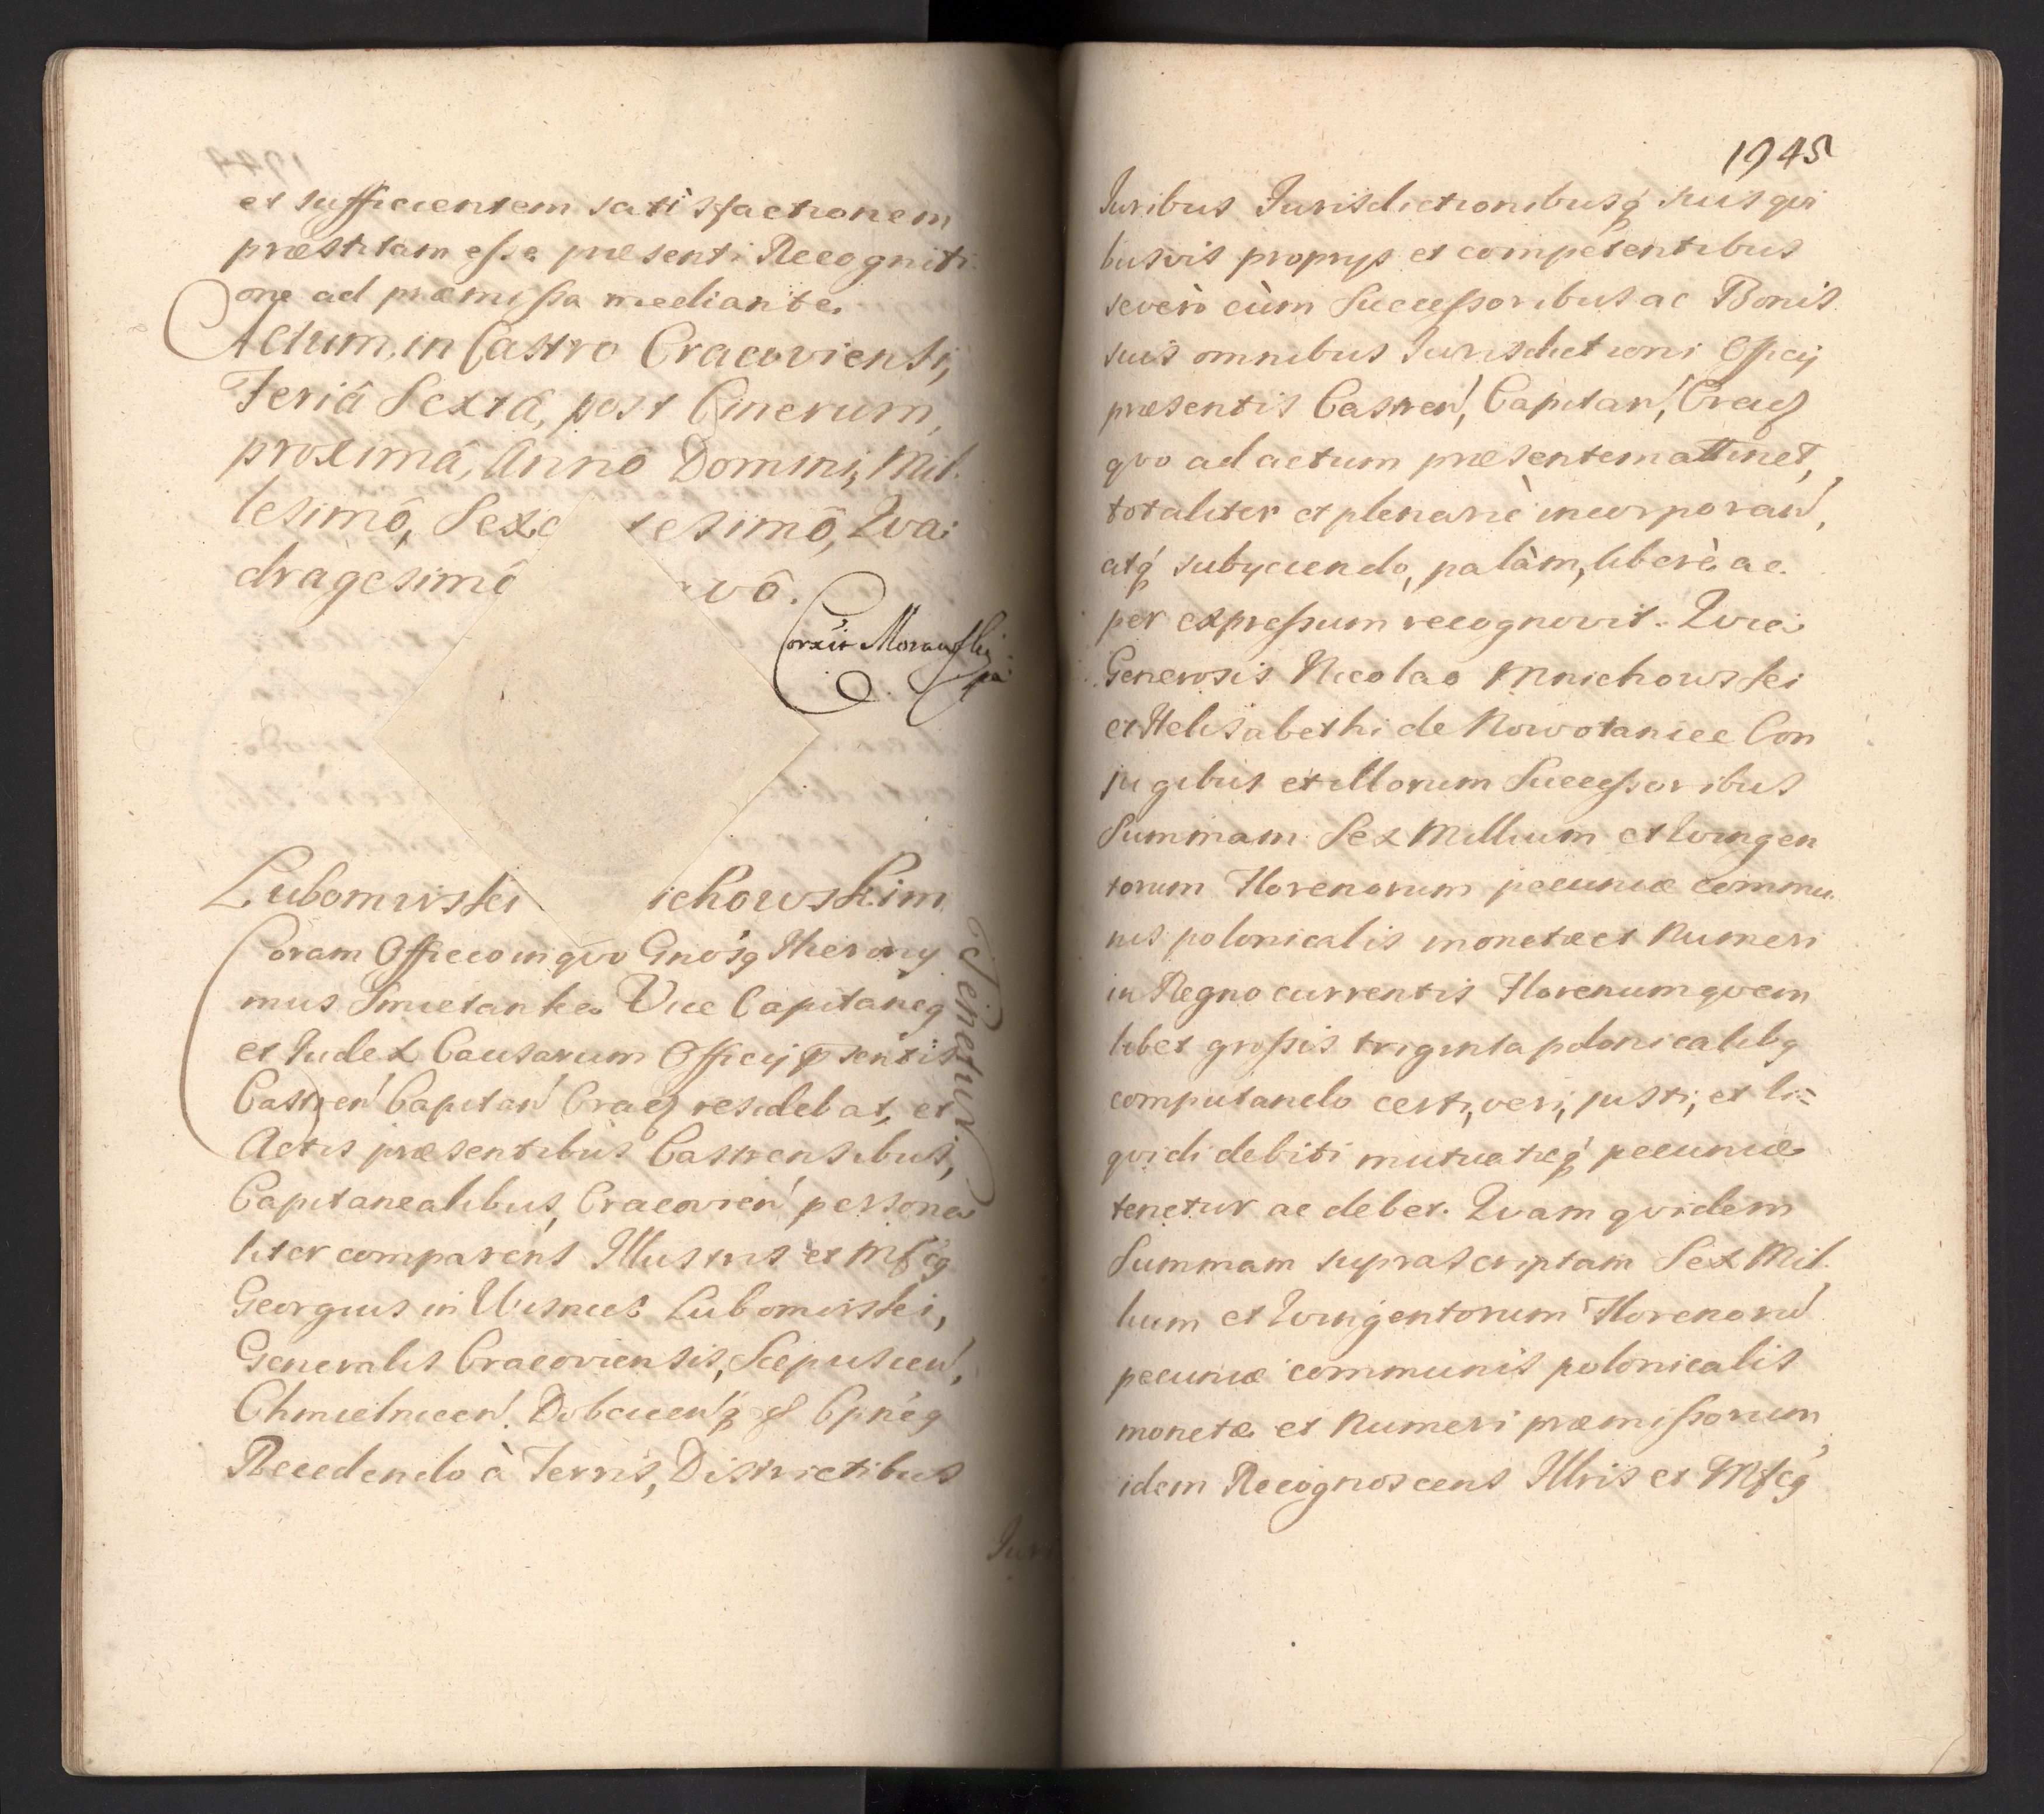 et sufficientem satisfactionem
præstitam esse præsenti Recogniti
one ad præmissa mediante.
Actum, in Castro Cracoviensi,
Feriâ Sextâ, post Cinerum,
proximâ, Annô Domini, Mil:
lesimô, Sexc tesimô, Qva:
dragesimô avô.
Corxit Morawski
Lubomirski ichowskim
Coram Officio in qvo Gnosq Hierony
mus Smietanka Vice Capitaneq
et Iudex Causarum Officij pñsentis
Castren' Capitan' Crac residebat, et
Actis præsentibus Castrensibus,
Capitanealibus, Cracovien' persona
liter comparens Illustris et Mfcq
Georgius in Wisnicz Lubomirski,
Generalis Cracoviensis, Scepusien',
Chmielnicen'. Dobcicen'q Cpneq
Recedendo à Terris, Districtibus
Tenetur.
Juri
1945
Iuribus Iurisdictionibusq' suis qvi
busvis proprys et competentibus
severò cùm Successoribus ac Bonis
suis omnibus Iurisdictioni Officij
præsentis Castren', Capitan', Crac
qvo ad actum præsentem attinet,
totaliter et plenariè incorporan',
atq' subyciendo, palàm, liberè ac
per expressum recognovit. Qvia
Generosis Nicolao Mnichowski
et Helisabethi de Nowotaniec Con
jugibus et illorum Successoribus
Summam Sex Millium et Qvingen
torum Florenorum pecuniæ commu
nis polonicalis monetæ et Numeri
in Regno currentis Florenum qvem
libet grossis triginta polonicalibq
computando certi, veri, justi, et li=
qvidi debiti mutuatæq' pecuniæ
tenetur ac debet. Qvam qvidem
Summam suprascriptam Sex Mil
lium et Qvingentorum Florenoru'
pecuniæ communis polonicalis
monetæ et Numeri præmissorum,
idem Recognoscens Illris et Mfcq